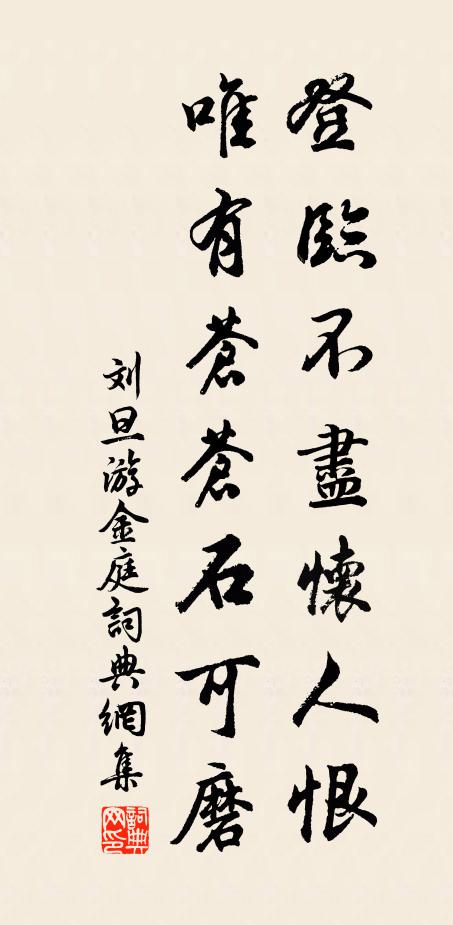 登臨不盡懷人恨
唯有蒼蒼石可磨
刘旦游金庭詞典網集
詞典网印